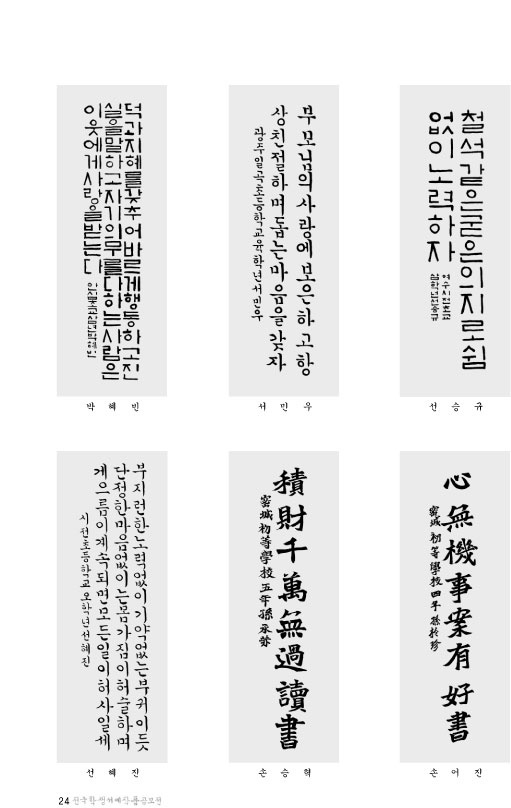 덕과지혜를갖추어바르게행동하고진
실을말하고자기의무를다하는사람은
이웃에게사랑을받는다
박혜민
부모님의사랑에보은하고항
상친절하며돕는마음을갖자
광주일곡초등학교육학년서민우
서민우
철석같은굳은의지로쉼
없이노력하자
선승규
부지런한노력없이기약없는부귀이듯
단정한마음없이는몸가짐이허술하며
게으름이계속되면모든일이허사일세
시전초등학교오학년선혜진
선혜진
積財千萬無過讀書
密城初等學校五年孫承
손승혁
心無機事案有好書
密城初等學校四年孫於珍
손어진
24 전국학생서예작품공모전